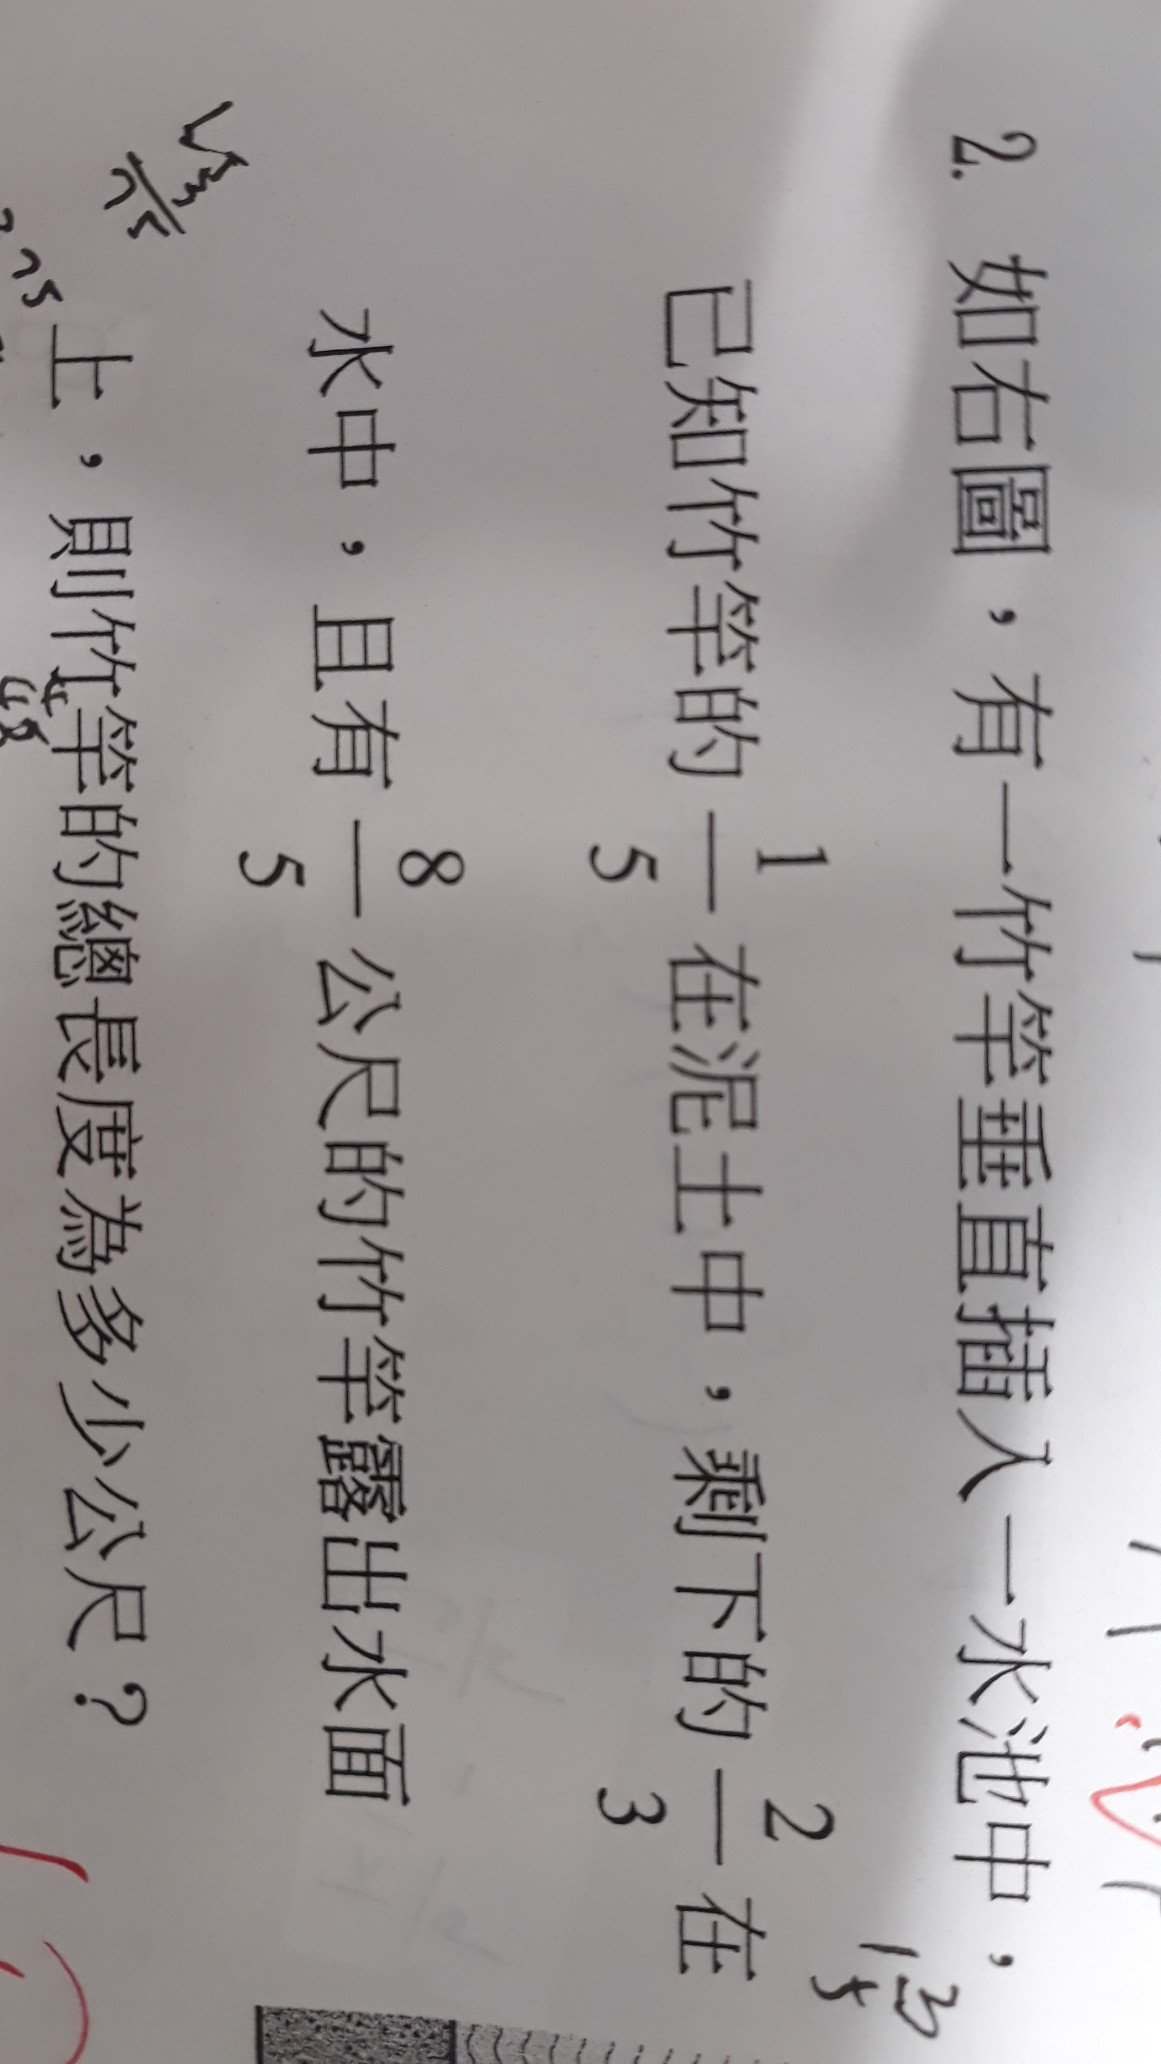 2. 如右圖，有一竹竿垂直插入一水池中，
已知竹竿的 1/5 在泥土中，剩下的 2/3 在
水中，且有 8/5 公尺的竹竿露出水面
上，則竹竿的總長度為多少公尺？